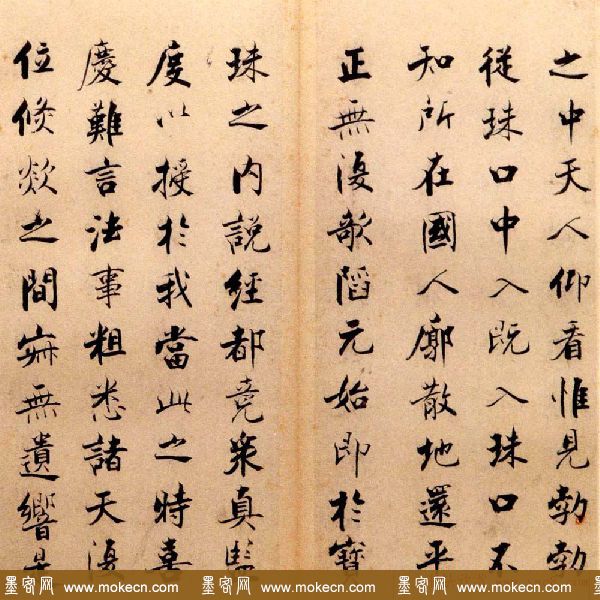 之中天人仰看惟見勃勃
從珠口中入既入珠口不
知所在國人廓散地還平
正無復欹陷元始即於寶
珠之内說經都竟衆真監
度以授於我當此之時喜
慶難言法事粗悉諸天復
位倏欻之間寂無遺響是
墨客网 - www.mokecn.com 墨客网 - www.mokecn.com 墨客网 - www.mokecn.com